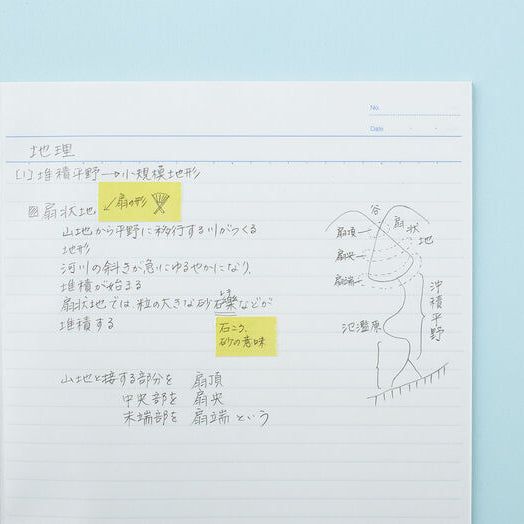 No.
Date
地理
[1] 堆積平野→小規模地形
扇状地
↙扇の形
山地から平野に移行する川がつくる
地形
河川の斜きが急にゆるやかになり、
堆積が始まる
扇状地では粒の大きな砂礫などが
堆積する
石ころ、
砂の意味
山地と接する部分を 扇頂
中央部を 扇央
末端部を 扇端 という
谷
扇頂
扇状
地
扇央
扇端
氾濫原
沖積平野